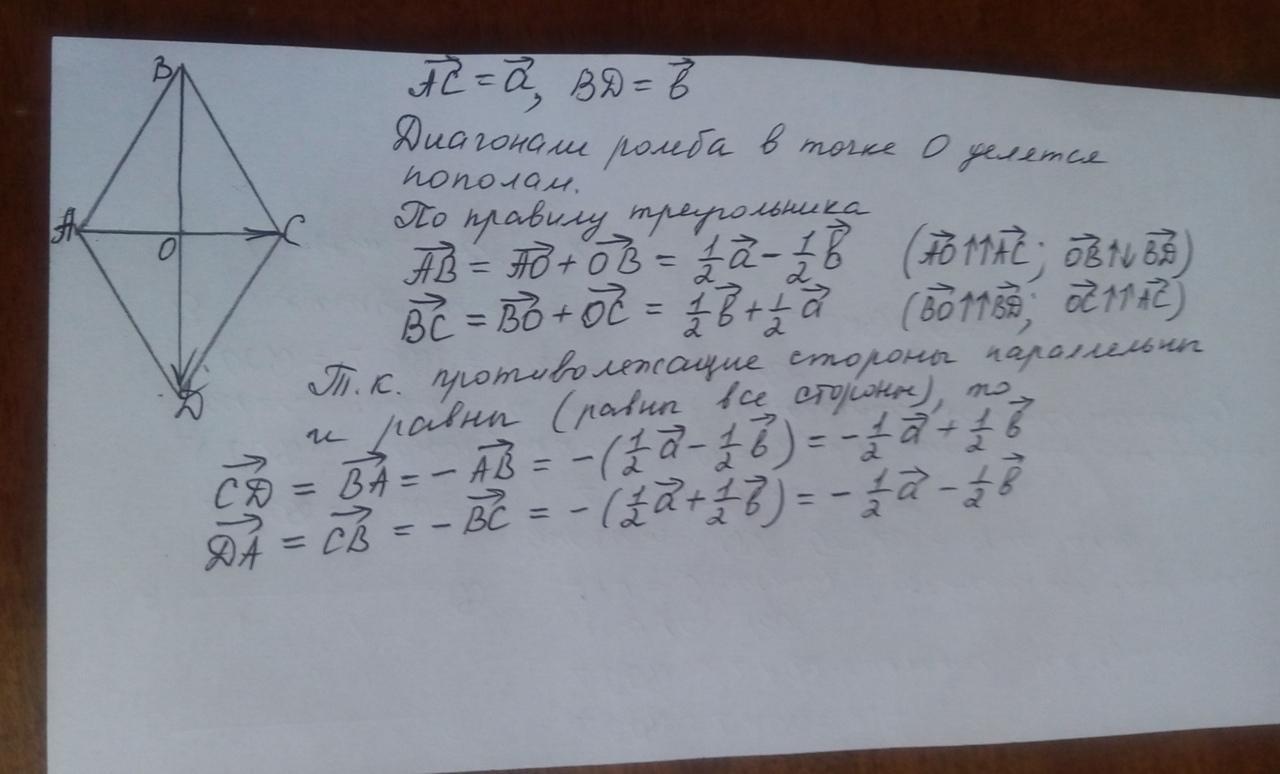 B
A
O
C
D
$\overrightarrow{AC} = \vec{a}$, $BD = \vec{b}$
Диагонали ромба в точке О делятся
пополам.
По правилу треугольника
$\overrightarrow{AB} = \overrightarrow{AO} + \overrightarrow{OB} = \frac{1}{2}\vec{a} - \frac{1}{2}\vec{b}$ ($\overrightarrow{AO}$↑↑$\overrightarrow{AC}$; $\overrightarrow{OB}$↑↓$\overrightarrow{BD}$)
$\overrightarrow{BC} = \overrightarrow{BO} + \overrightarrow{OC} = \frac{1}{2}\vec{b} + \frac{1}{2}\vec{a}$ ($\overrightarrow{BO}$↑↑$\overrightarrow{BD}$; $\overrightarrow{OC}$↑↑$\overrightarrow{AC}$)
Т.к. противолежащие стороны параллельны
и равны (равны все стороны), то
$\overrightarrow{CD} = \overrightarrow{BA} = -\overrightarrow{AB} = -(\frac{1}{2}\vec{a} - \frac{1}{2}\vec{b}) = -\frac{1}{2}\vec{a} + \frac{1}{2}\vec{b}$
$\overrightarrow{DA} = \overrightarrow{CB} = -\overrightarrow{BC} = -(\frac{1}{2}\vec{a} + \frac{1}{2}\vec{b}) = -\frac{1}{2}\vec{a} - \frac{1}{2}\vec{b}$